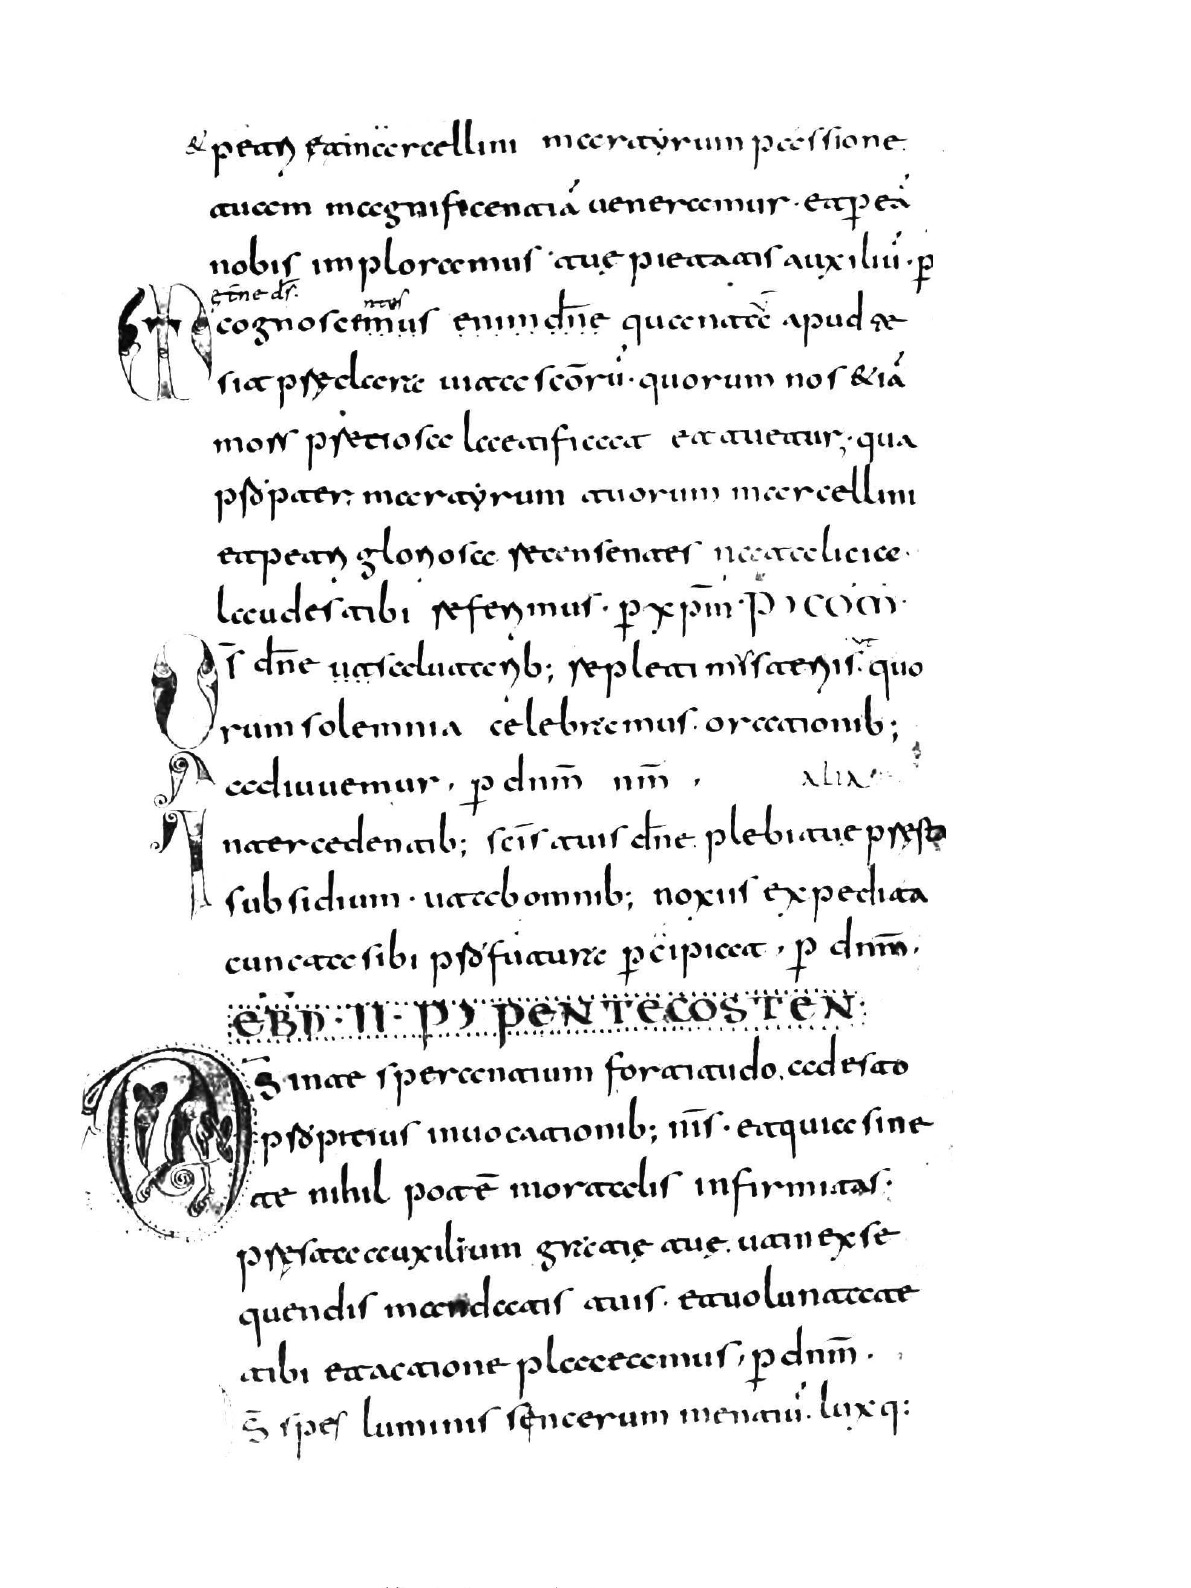 & petri et marcellini martyrum passione
tuam magnificentiā ueneremur · et p eā
nobis imploremus tuę pietatis auxiliū · p
ęt̄ne d̄s
cognoscimus enim dn̄e quantū apud te
sit pręclara uita sc̄orū · quorum nos & iā
mors pretiosa laetificat et tuetur; · qua
propter martyrum tuorum marcellini
et petri gloriosa recensentes natalicia ·
laudes tibi referimus · p xpm̄ · P' COM ·
s̄ dn̄e ut salutarib; repleti mysteriis · quo
rum solemnia celebramus · orationib;
adiuuemur · p dnm̄ nm̄ · ALIA
Intercedentib; sc̄is tuis dn̄e plebi tuę pręsta
subsidium · ut ab omnib; noxiis expedita
cuncta sibi profutura pcipiat · p dnm̄ ·
EBD · II · P' PENTECOSTEN ·
D s̄ in te sperantium fortitudo · adesto
propitius inuocationib; nr̄is · et quia sine
te nihil potē mortalis infirmitas ·
pręsta auxilium gratię tuę · ut in exse
quendis mandatis tuis · et uoluntate
tibi et actione placeamus · p dnm̄ ·
s̄ spes luminis sincerum mentiū · luxq: